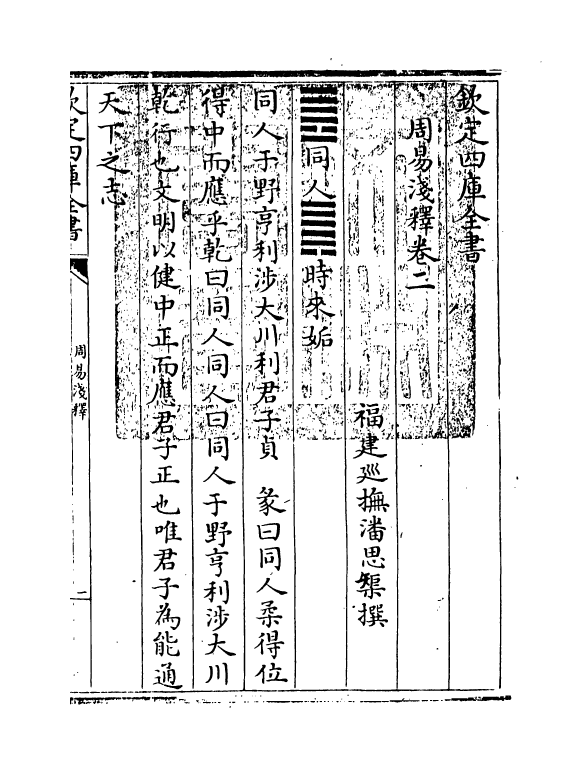 欽定四庫全書
周易淺釋卷二
福建廵撫潘思榘撰
䷌同人䷫時來姤
同人于野亨利涉大川利君子貞　彖曰同人柔得位
得中而應乎乾曰同人同人曰同人于野亨利涉大川
乾行也文明以健中正而應君子正也唯君子為能通
天下之志
欽定四庫全書
周易淺釋